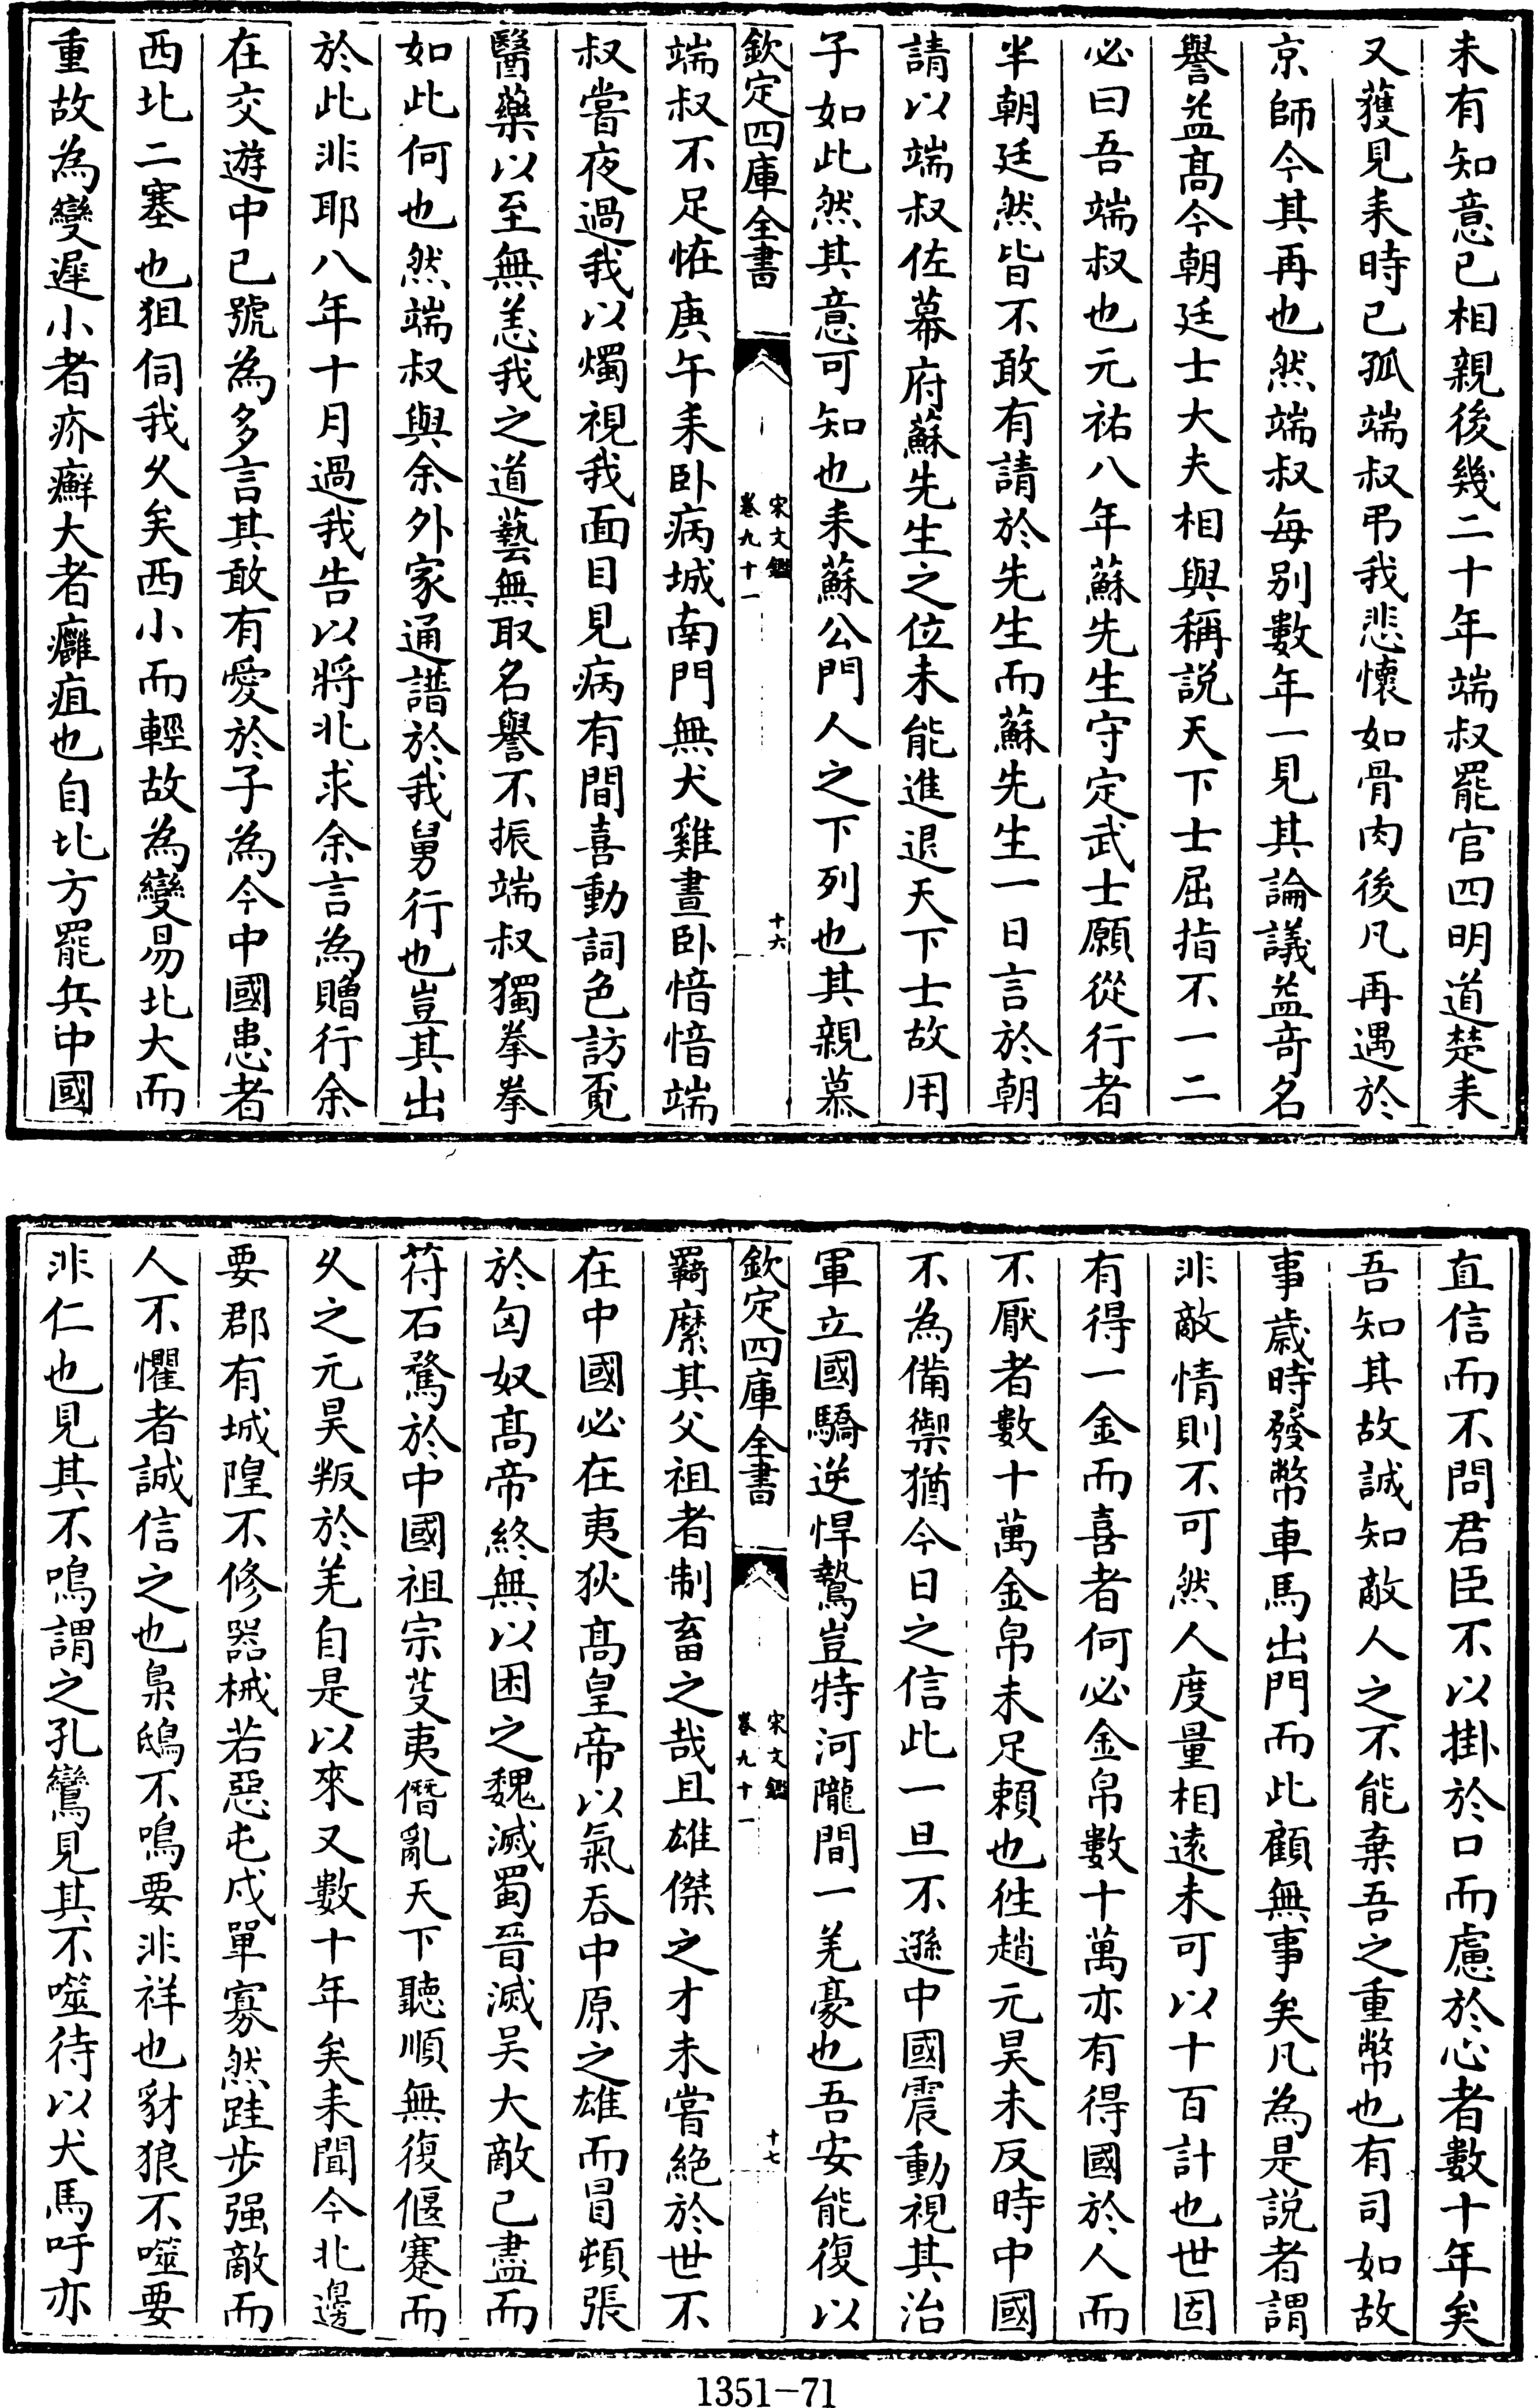 未有知意已相親後幾二十年端叔罷官四明道楚耒
又獲見耒時已孤端叔弔我悲懷如骨肉後凡再遇於
京師今其再也然端叔每别數年一見其論議益奇名
譽益髙今朝廷士大夫相與稱説天下士屈指不一二
必曰吾端叔也元祐八年蘇先生守定武士願從行者
半朝廷然皆不敢有請於先生而蘇先生一日言於朝
請以端叔佐幕府蘇先生之位未能進退天下士故用
子如此然其意可知也耒蘇公門人之下列也其親慕
欽定四庫全書
宋文鑑
卷九十一
十六
端叔不足恠庚午耒卧病城南門無犬雞晝卧愔愔端
叔嘗夜過我以燭視我面目見病有間喜動詞色訪覔
醫藥以至無恙我之道藝無取名譽不振端叔獨拳拳
如此何也然端叔與余外家通譜於我舅行也豈其出
於此非耶八年十月過我告以將北求余言為贈行余
在交遊中已號為多言其敢有愛於子為今中國患者
西北二塞也狙伺我久矣西小而輕故為變易北大而
重故為變遲小者疥癬大者癰疽也自北方罷兵中國
直信而不問君臣不以掛於口而慮於心者數十年矣
吾知其故誠知敵人之不能棄吾之重幣也有司如故
事歳時發幣車馬出門而此顧無事矣凡為是説者謂
非敵情則不可然人度量相逺未可以十百計也世固
有得一金而喜者何必金帛數十萬亦有得國於人而
不厭者數十萬金帛未足賴也徃趙元昊未反時中國
不為備禦猶今日之信此一旦不遜中國震動視其治
軍立國驕逆悍鷙豈特河隴間一羌豪也吾安能復以
欽定四庫全書
宋文鑑
卷九十一
十七
羇縻其父祖者制畜之哉且雄傑之才未嘗絶於世不
在中國必在夷狄髙皇帝以氣吞中原之雄而冒頓張
於匈奴髙帝終無以困之魏滅蜀晉滅吴大敵已盡而
苻石騖於中國祖宗芟夷僭亂天下聽順無復偃蹇而
久之元昊叛於羌自是以來又數十年矣耒聞今北邊
要郡有城隍不修器械若惡屯戍單寡然跬步强敵而
人不懼者誠信之也梟鴟不鳴要非祥也豺狼不噬要
非仁也見其不鳴謂之孔鸞見其不噬待以犬馬吁亦
1351-71